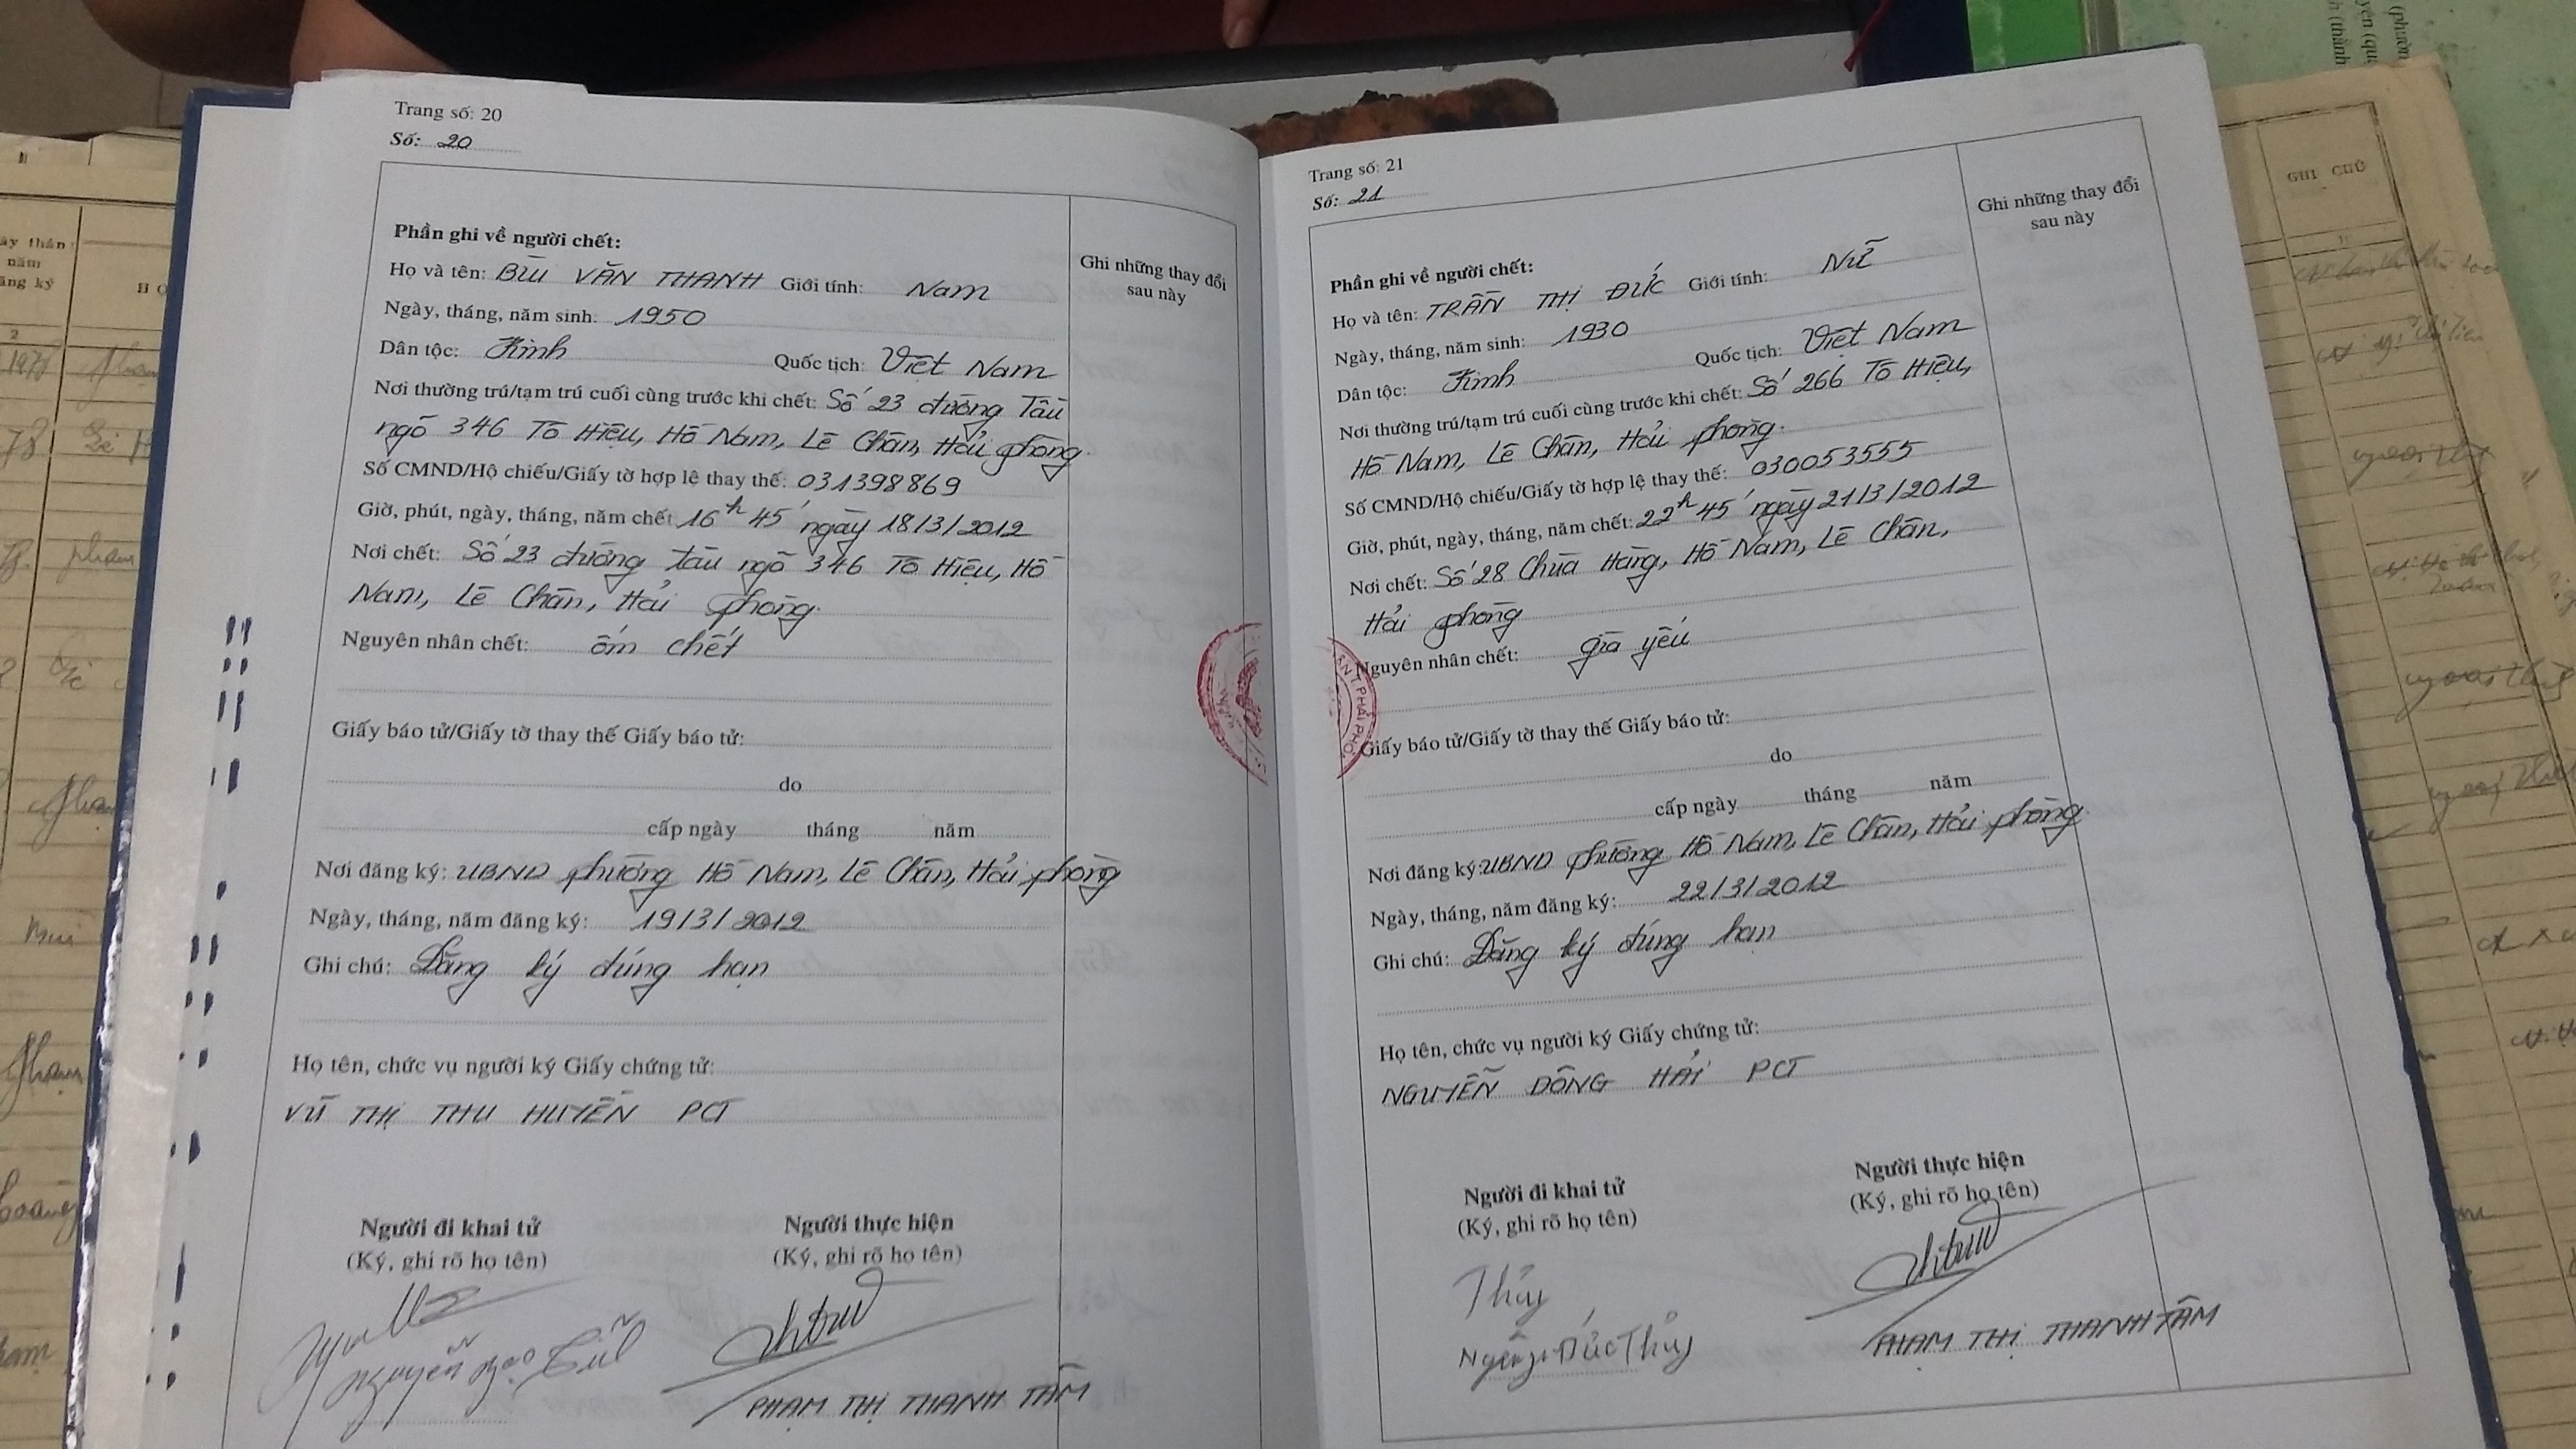 Trang số: 20
Số: 20
Phần ghi về người chết:
Họ và tên: BÙI VĂN THANH Giới tính: Nam
Ngày, tháng, năm sinh: 1950
Dân tộc: Kinh Quốc tịch: Việt Nam
Nơi thường trú/tạm trú cuối cùng trước khi chết: Số 23 đường Tàu
ngõ 346 Tô Hiệu, Hồ Nam, Lê Chân, Hải phòng.
Số CMND/Hộ chiếu/Giấy tờ hợp lệ thay thế: 031398869
Giờ, phút, ngày, tháng, năm chết: 16h 45' ngày 18/3/2012
Nơi chết: Số 23 đường tàu ngõ 346 Tô Hiệu, Hồ
Nam, Lê Chân, Hải phòng.
Nguyên nhân chết: ốm chết
Giấy báo tử/Giấy tờ thay thế Giấy báo tử:
do
cấp ngày tháng năm
Nơi đăng ký: UBND phường Hồ Nam, Lê Chân, Hải phòng
Ngày, tháng, năm đăng ký: 19/3/2012
Ghi chú: Đăng ký đúng hạn
Họ tên, chức vụ người ký Giấy chứng tử:
VŨ THỊ THU HUYỀN PCT
Người đi khai tử Người thực hiện
(Ký, ghi rõ họ tên) (Ký, ghi rõ họ tên)
Nguyễn
PHẠM THỊ THANH TÂM
Ghi những thay đổi
sau này
Trang số: 21
Số: 21
Phần ghi về người chết:
Họ và tên: TRẦN THỊ ĐỨC Giới tính: Nữ
Ngày, tháng, năm sinh: 1930
Dân tộc: Kinh Quốc tịch: Việt Nam
Nơi thường trú/tạm trú cuối cùng trước khi chết: Số 266 Tô Hiệu,
Hồ Nam, Lê Chân, Hải phòng.
Số CMND/Hộ chiếu/Giấy tờ hợp lệ thay thế: 030053555
Giờ, phút, ngày, tháng, năm chết: 22h 45' ngày 21/3/2012
Nơi chết: Số 28 Chùa Hàng, Hồ Nam, Lê Chân,
Hải phòng
Nguyên nhân chết: già yếu
Giấy báo tử/Giấy tờ thay thế Giấy báo tử:
do
cấp ngày tháng năm
Nơi đăng ký: UBND phường Hồ Nam, Lê Chân, Hải phòng.
Ngày, tháng, năm đăng ký: 22/3/2012
Ghi chú: Đăng ký đúng hạn
Họ tên, chức vụ người ký Giấy chứng tử:
NGUYỄN ĐÔNG HẢI PCT
Người đi khai tử Người thực hiện
(Ký, ghi rõ họ tên) (Ký, ghi rõ họ tên)
Thủy
Đức Thủy
PHẠM THỊ THANH TÂM
Ghi những thay đổi
sau này
GHI CHÚ
năm